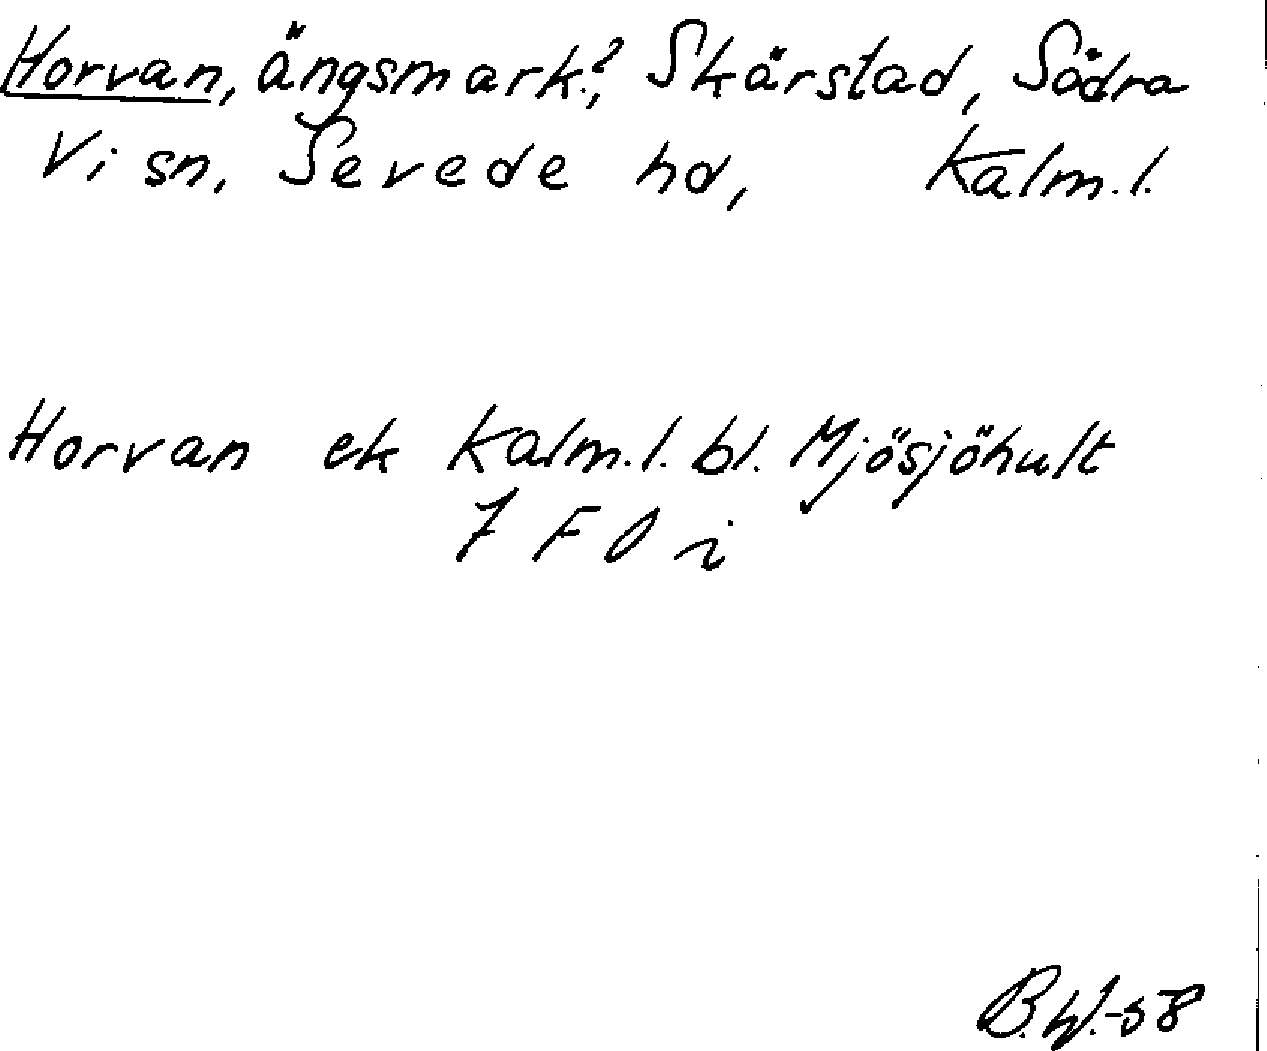 Horvan, ängsmark?, Skärstad, Södra
Vi sn, Sevede hd, Kalm.l.
Horvan ek Kalm.l. bl. Mjösjöhult
7 F 0 i
B.W.-58